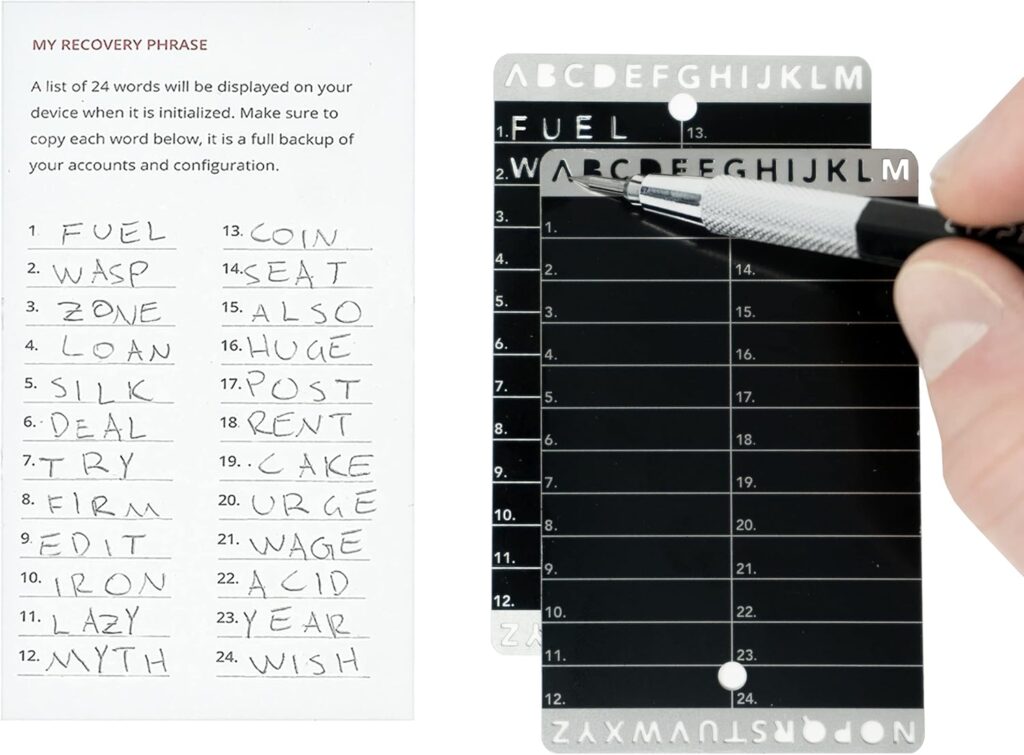 MY RECOVERY PHRASE
A list of 24 words will be displayed on your
device when it is initialized. Make sure to
copy each word below, it is a full backup of
your accounts and configuration.
1 FUEL
2. WASP
3. ZONE
4. LOAN
5. SILK
6. DEAL
7. TRY
8. FIRM
9. EDIT
10. IRON
11. LAZY
12. MYTH
13. COIN
14. SEAT
15. ALSO
16. HUGE
17. POST
18 RENT
19. CAKE
20. URGE
21. WAGE
22. ACID
23. YEAR
24. WISH
ABCDEFGHIJKLM
1. FUEL
13.
2. W
3.
4.
5.
6.
7.
8.
9.
10.
11.
12.
ZY
ABCDEFGHIJKL M
1.
2.
3.
4.
5.
6.
7.
8.
9.
10.
11.
12.
14.
15.
16.
17.
18.
19.
20.
21.
22.
23.
24.
NOPQRSTUVWXYZ